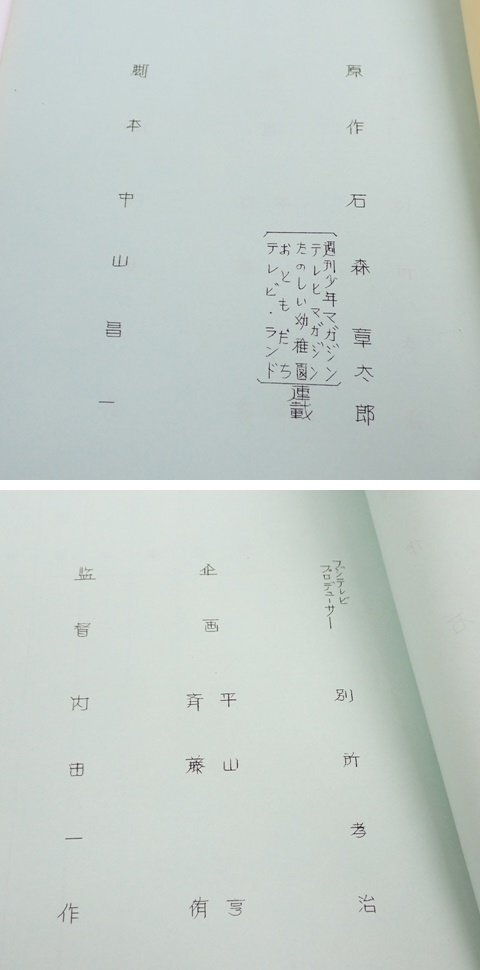 原作 石森章太郎
週刊少年マガジン
テレビマガジン
たのしい幼稚園
おともだち
テレビ・ランド
連載
脚本 中山昌一
フジテレビ
プロデューサー
別所孝治
企画 平山亨
斉藤侑
監督 内田一作